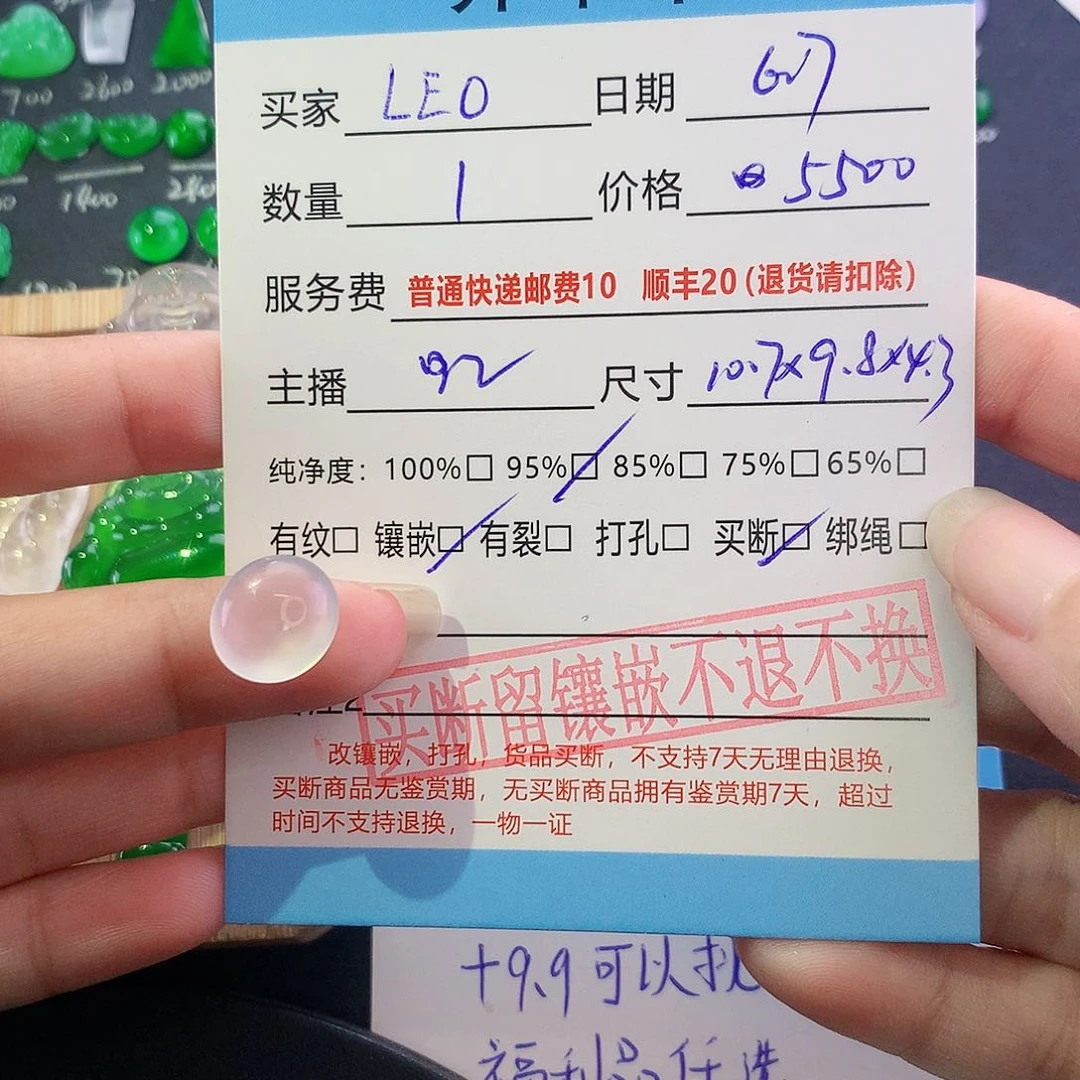 700 2800 2000
1400
买家 LEO 日期 6.17
数量 1 价格 5500
服务费 普通快递邮费10 顺丰20(退货请扣除)
主播 92 尺寸 10.7x9.8x4.3
纯净度：100%□ 95%☑ 85%□ 75%□ 65%□
有纹□ 镶嵌☑ 有裂□ 打孔□ 买断☑ 绑绳□
买断留镶嵌不退不换
改镶嵌，打孔，货品买断，不支持7天无理由退换，
买断商品无鉴赏期，无买断商品拥有鉴赏期7天，超过
时间不支持退换，一物一证
+9.9可以
福利品任选